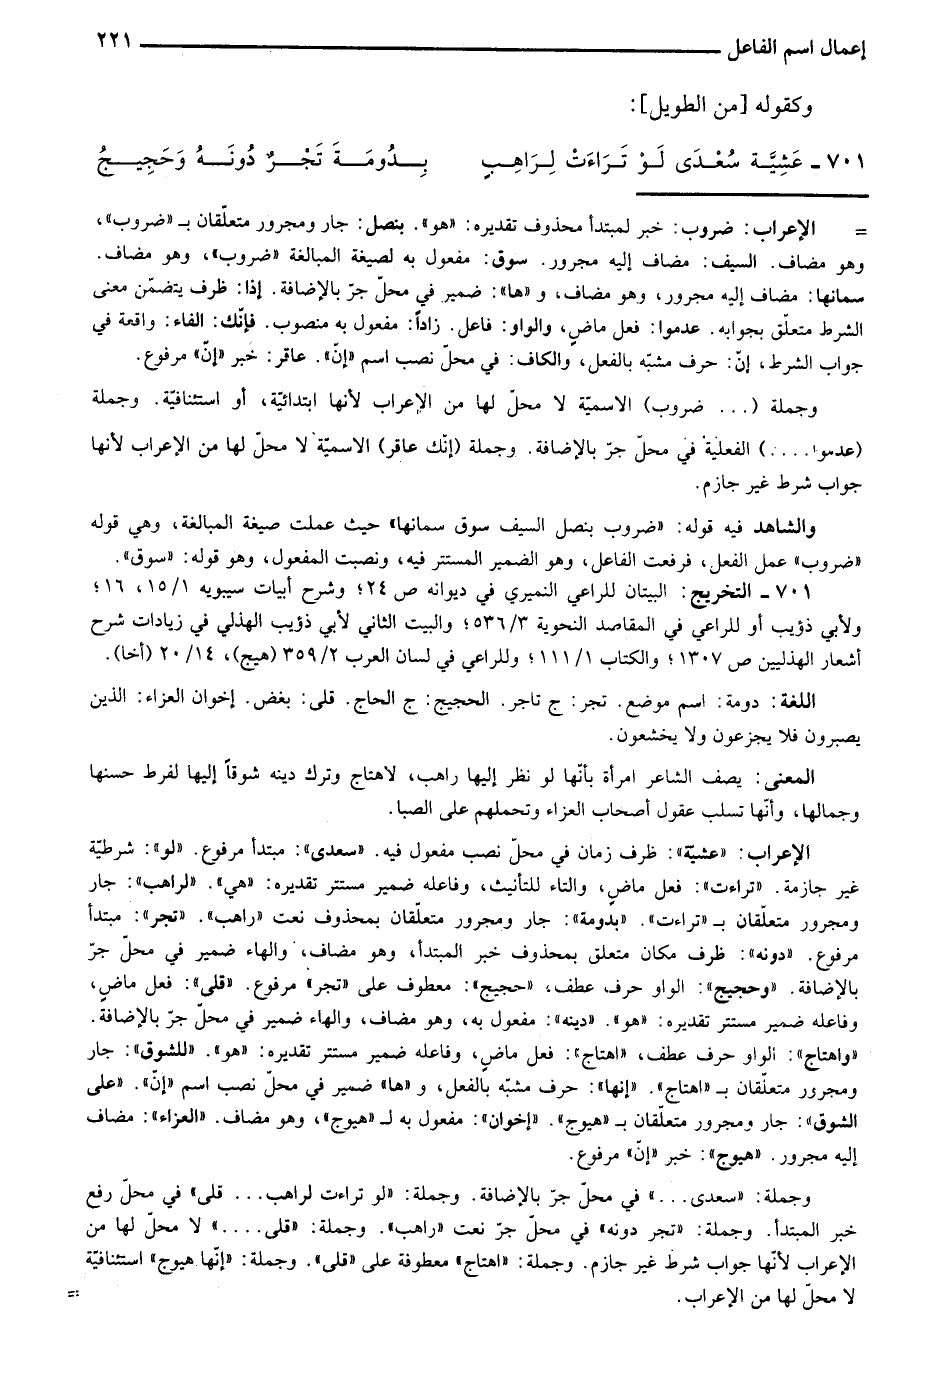 إعمال اسم الفاعل ٢٢١
وكقوله [من الطويل]:
٧٠١ ـ عَشِيَّةَ سُعْدَى لَوْ تَرَاءَتْ لِرَاهِبٍ بِدُومَةَ تَجْرٌ دُونَهُ وَحَجِيجُ
= الإعراب: ضروب: خبر لمبتدأ محذوف تقديره: «هو». بنصل: جار ومجرور متعلّقان بـ «ضروب»،
وهو مضاف. السيف: مضاف إليه مجرور. سوق: مفعول به لصيغة المبالغة «ضروب»، وهو مضاف.
سمانها: مضاف إليه مجرور، وهو مضاف، و «ها»: ضمير في محلّ جرّ بالإضافة. إذا: ظرف يتضمّن معنى
الشرط متعلّق بجوابه. عدموا: فعل ماضٍ، والواو: فاعل. زاداً: مفعول به منصوب. فإنّك: الفاء: واقعة في
جواب الشرط، إنّ: حرف مشبّه بالفعل، والكاف: في محلّ نصب اسم «إنّ». عاقر: خبر «إنّ» مرفوع.
وجملة (... ضروب) الاسميّة لا محلّ لها من الإعراب لأنها ابتدائيّة، أو استئنافيّة. وجملة
(عدموا....) الفعلية في محلّ جرّ بالإضافة. وجملة (إنّك عاقر) الاسميّة لا محلّ لها من الإعراب لأنها
جواب شرط غير جازم.
والشاهد فيه قوله: «ضروب بنصل السيف سوق سمانها» حيث عملت صيغة المبالغة، وهي قوله
«ضروب» عمل الفعل، فرفعت الفاعل، وهو الضمير المستتر فيه، ونصبت المفعول، وهو قوله: «سوق».
٧٠١ ـ التخريج: البيتان للراعي النميري في ديوانه ص ٢٤؛ وشرح أبيات سيبويه ١/ ١٥، ١٦؛
ولأبي ذؤيب أو للراعي في المقاصد النحوية ٣/ ٥٣٦؛ والبيت الثاني لأبي ذؤيب الهذلي في زيادات شرح
أشعار الهذليين ص ١٣٠٧؛ والكتاب ١/ ١١١؛ وللراعي في لسان العرب ٢/ ٣٥٩ (هيج)، ١٤/ ٢٠ (أخا).
اللغة: دومة: اسم موضع. تجر: ج تاجر. الحجيج: ج الحاج. قلى: بغض. إخوان العزاء: الذين
يصبرون فلا يجزعون ولا يخشعون.
المعنى: يصف الشاعر امرأة بأنّها لو نظر إليها راهب، لاهتاج وترك دينه شوقاً إليها لفرط حسنها
وجمالها، وأنّها تسلب عقول أصحاب العزاء وتحملهم على الصبا.
الإعراب: «عشيّة»: ظرف زمان في محلّ نصب مفعول فيه. «سعدى»: مبتدأ مرفوع. «لو»: شرطيّة
غير جازمة. «تراءت»: فعل ماضٍ، والتاء للتأنيث، وفاعله ضمير مستتر تقديره: «هي». «لراهب»: جار
ومجرور متعلّقان بـ «تراءت». «بدومة»: جار ومجرور متعلّقان بمحذوف نعت «راهب». «تجر»: مبتدأ
مرفوع. «دونه»: ظرف مكان متعلق بمحذوف خبر المبتدأ، وهو مضاف، والهاء ضمير في محلّ جرّ
بالإضافة. «وحجيج»: الواو حرف عطف، «حجيج»: معطوف على «تجر» مرفوع. «قلى»: فعل ماضٍ،
وفاعله ضمير مستتر تقديره: «هو». «دينه»: مفعول به، وهو مضاف، والهاء ضمير في محلّ جرّ بالإضافة.
«واهتاج»: الواو حرف عطف، «اهتاج»: فعل ماضٍ، وفاعله ضمير مستتر تقديره: «هو». «للشوق»: جار
ومجرور متعلّقان بـ «اهتاج». «إنها»: حرف مشبّه بالفعل، و «ها» ضمير في محلّ نصب اسم «إنّ». «على
الشوق»: جار ومجرور متعلّقان بـ «هيوج». «إخوان»: مفعول به لـ «هيوج»، وهو مضاف. «العزاء»: مضاف
إليه مجرور. «هيوج»: خبر «إنّ» مرفوع.
وجملة: «سعدى...» في محلّ جرّ بالإضافة. وجملة: «لو تراءت لراهب... قلى» في محلّ رفع
خبر المبتدأ. وجملة: «تجر دونه» في محلّ جرّ نعت «راهب». وجملة: «قلى....» لا محلّ لها من
الإعراب لأنّها جواب شرط غير جازم. وجملة: «اهتاج» معطوفة على «قلى». وجملة: «إنّها هيوج» استئنافيّة
لا محلّ لها من الإعراب. =